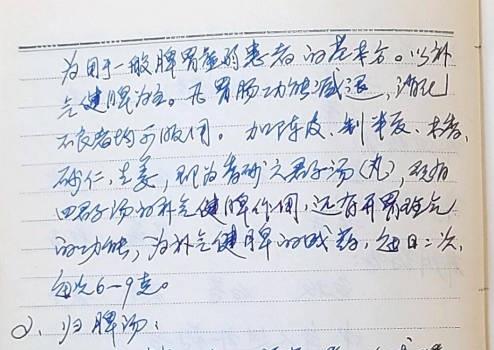 为用于一般脾胃虚弱患者的基本方。以补
气健脾为主。凡胃肠功能减退，消化
不良者均可服用。加陈皮、制半夏、木香、
砂仁，生姜，即为香砂六君子汤（丸），既有
四君子汤的补气健脾作用，还有开胃理气
的功能，为补气健脾的成药，每日二次，
每次6—9克。
2、归脾汤：